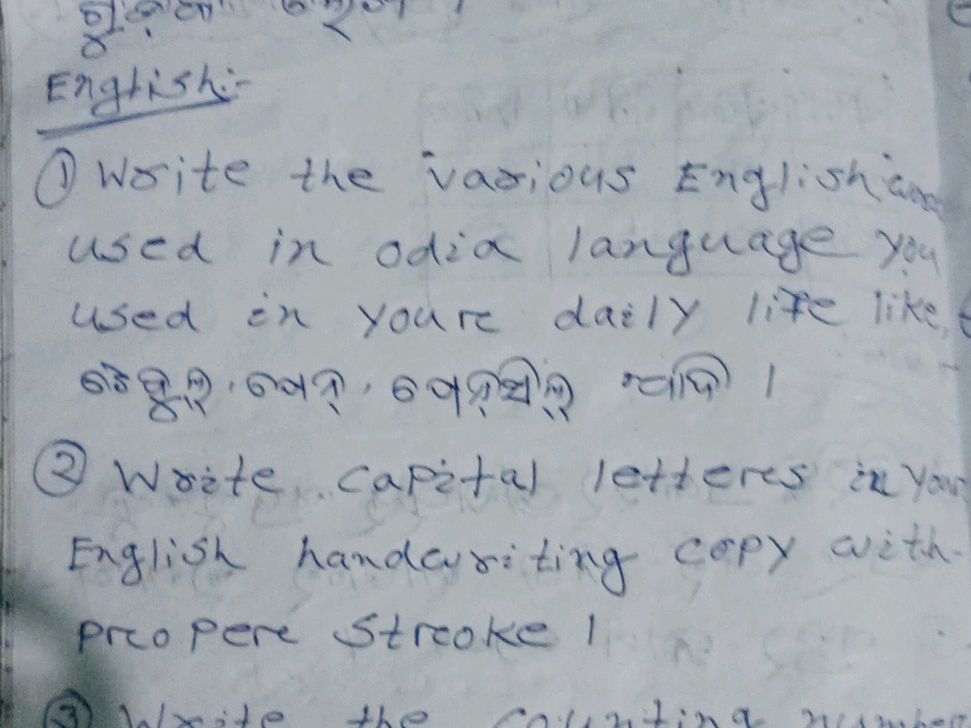 English:-
① Write the various English
used in odia language you
used in youre daily life like,
ଟେବୁଲ୍, ପେନ୍, ପେନ୍‌ସିଲ୍ ଆଦି ।
② Write capital letteres in your
English handwriting copy with
preopere Streoke ।
③ Write the counting number